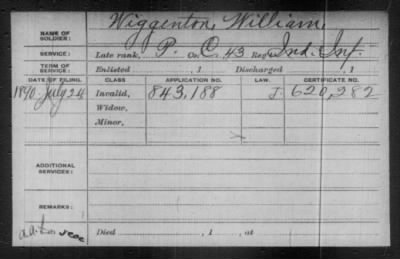 NAME OF SOLDIER: Wiggenton, William.
SERVICE: Late rank, P. Co. C, 43 Reg't Ind. Inf.
TERM OF SERVICE: Enlisted , 1 Discharged , 1
DATE OF FILING. CLASS. APPLICATION NO. LAW. CERTIFICATE NO.
1890, July 24 Invalid, 843,188 J. 620,282
Widow,
Minor,
ADDITIONAL SERVICES:
REMARKS:
Died , 1 , at